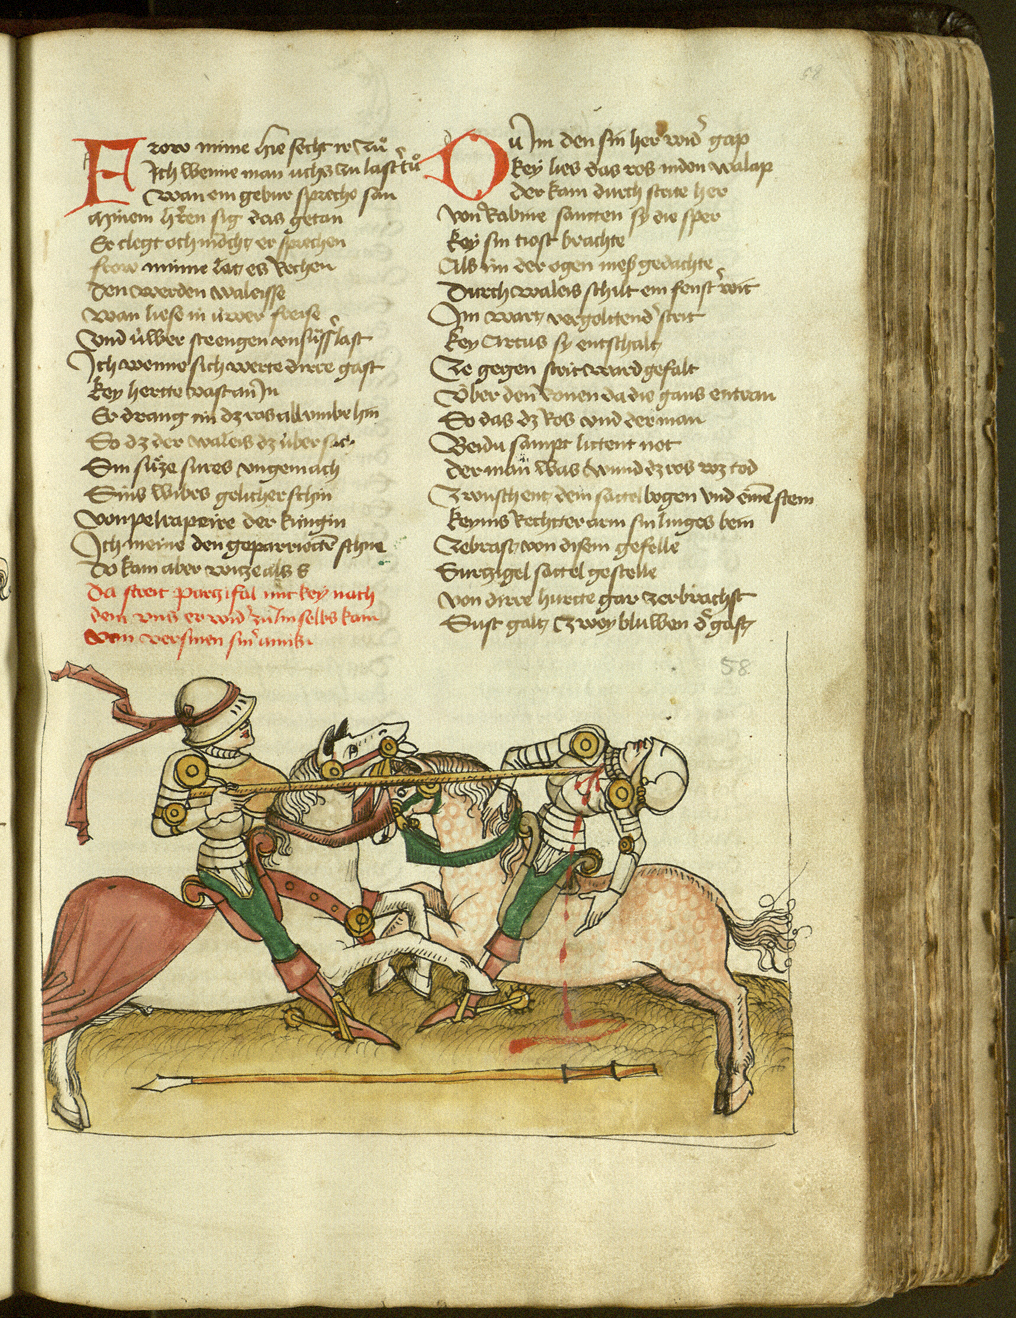 58
Frow minne hie secht ir zuͦ
Ich wenne man úchs zu laster tuͦ
Wan ein gebur spreche san
Minem hѐren sig das getan
Er clegt och möcht er sprechen
frow minne lat es Rechen
Den werden waleisse
Wan liese in úwer freise
Vnd úwer strengen vnsuͤsser last
Ich wenne sich werte dirre gast
key herte vast an In
Er drang im dz ros alumbe hin
So dz der waleis dz úber sach
Sin suͤze sures vngemach
Sins wibes gelicher schin
Von pelrapeire der kúngin
Ich meine den geparrierten schne
Do kam aber witze als e
Da streit parzifal mit key nach
dem vns er wider zuͦ Im selbs kam
von versinen siner amien
Oú Im den sin her wider gap
key lies das ros in den walap
der kam durch strite her
Von Rabine sancten sy die sper
key sin tiost brachte
Als im der ogen mess gedachte
Durch waleis schilt ein fenster wit
Im wart vergoltend strit
key Artus sy entschalt
Ze gegen strit ward gefalt
Úber den Ronen da die gans entran
So das dz Ros vnd der man
Beidu sampt littent not
der man was wund dz ros roz tod
Zwuschent dem sattelbogen vnd einem stein
keyins Rechter arm sin linges bein
Zebrast von disem gefelle
Surzigel sattel gestelle
Von dirre hurte gar zerbrachst
Sust galt Zwey bluwen der gast
58